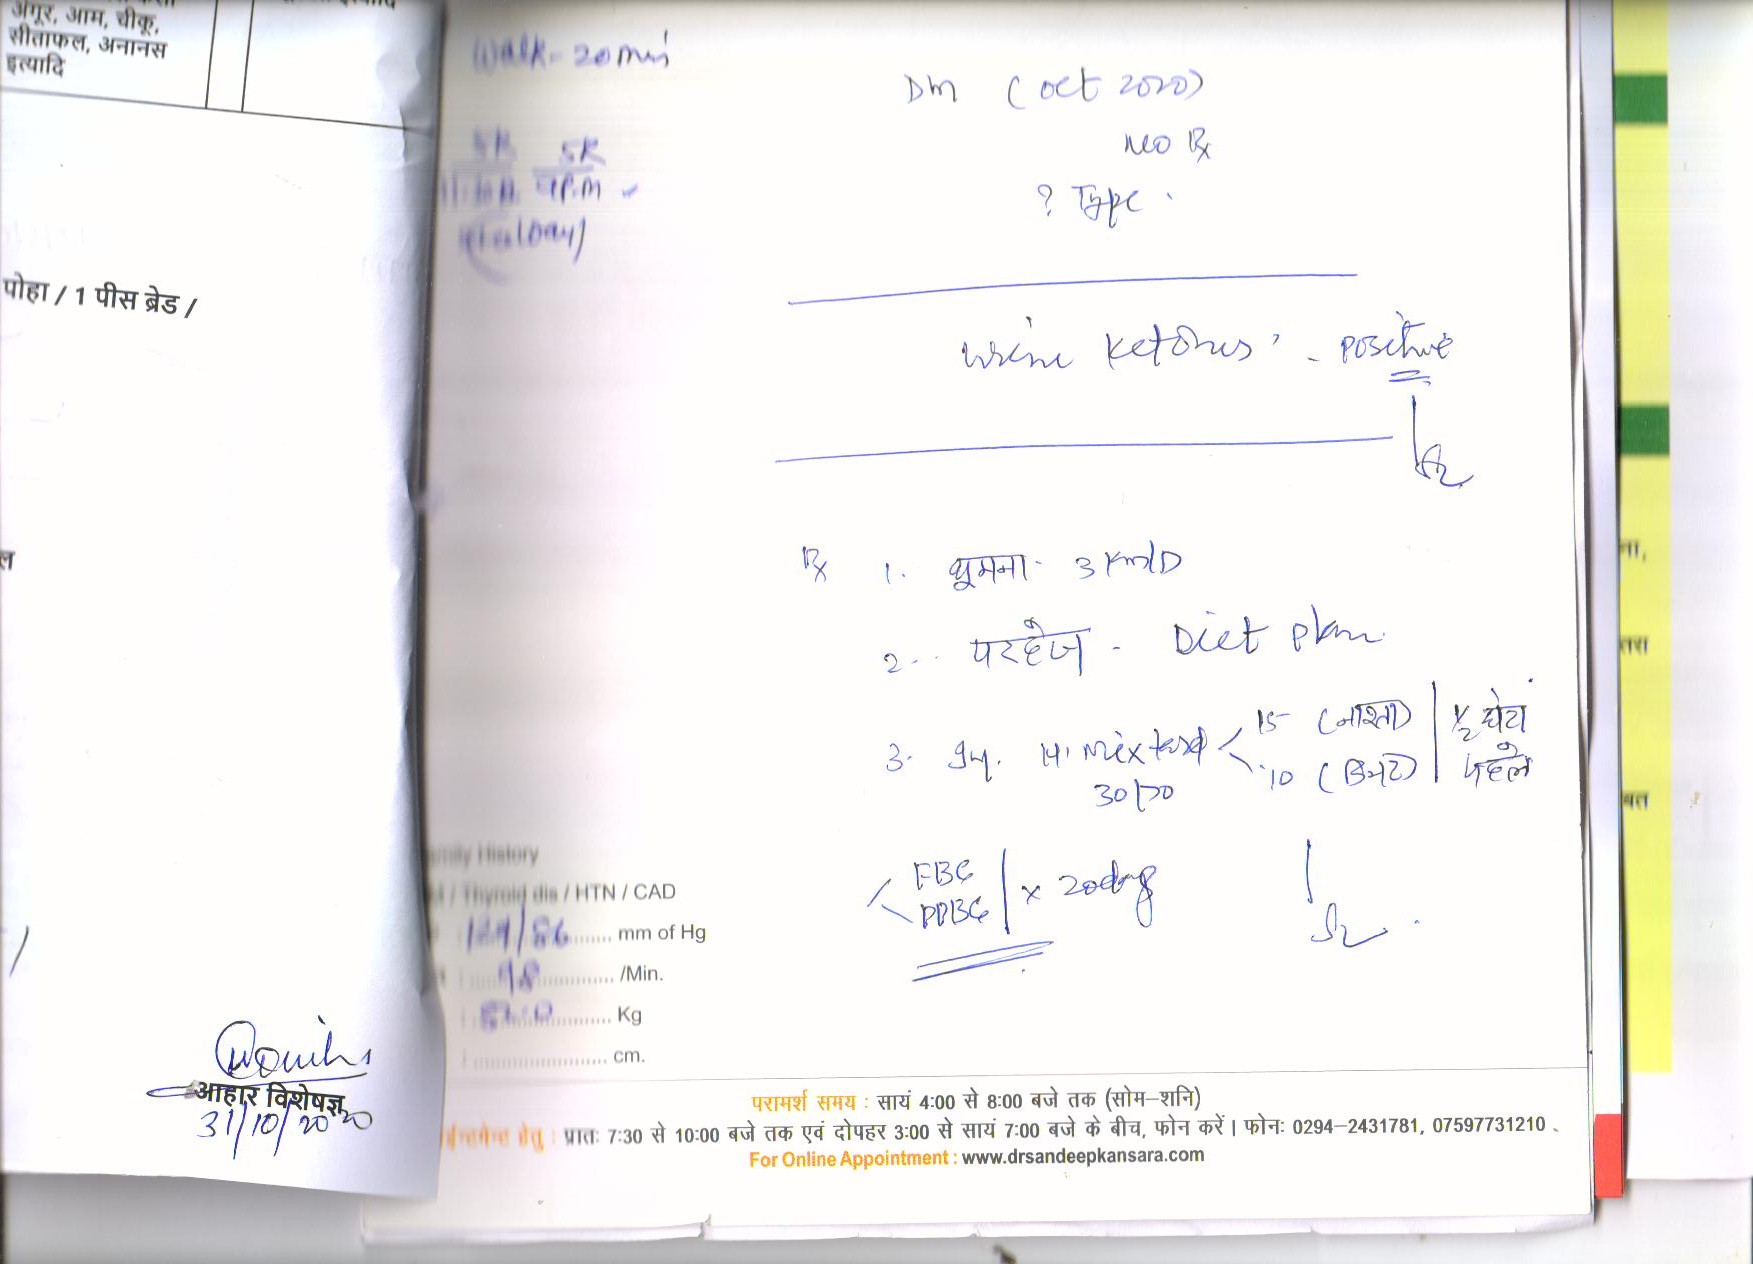 अंगूर, आम, चीकू,
सीताफल, अनानस
इत्यादि
पोहा / 1 पीस ब्रेड /
ल
/
आहार विशेषज्ञ
31/10/2020
Walk - 20 min
5K 5K
9P.M
DM (Oct 2020)
No Rx
? Type.
Urine Ketones - Positive
Rx 1. घूमना - 3 Km/D
2. परहेज - Diet plan
3. Inj. H. Mixtard 15 (नाश्ता) ½ घंटा
30/70 10 (डिनर) पहले
FBG
PPBG x 20 days
Family History
/ Thyroid dis / HTN / CAD
129/86 mm of Hg
98 /Min.
Kg
cm.
परामर्श समय : सायं 4:00 से 8:00 बजे तक (सोम–शनि)
हेतु : प्रातः 7:30 से 10:00 बजे तक एवं दोपहर 3:00 से सायं 7:00 बजे के बीच, फोन करें। फोनः 0294–2431781, 07597731210 .
For Online Appointment : www.drsandeepkansara.com
ना,
तरा
बत